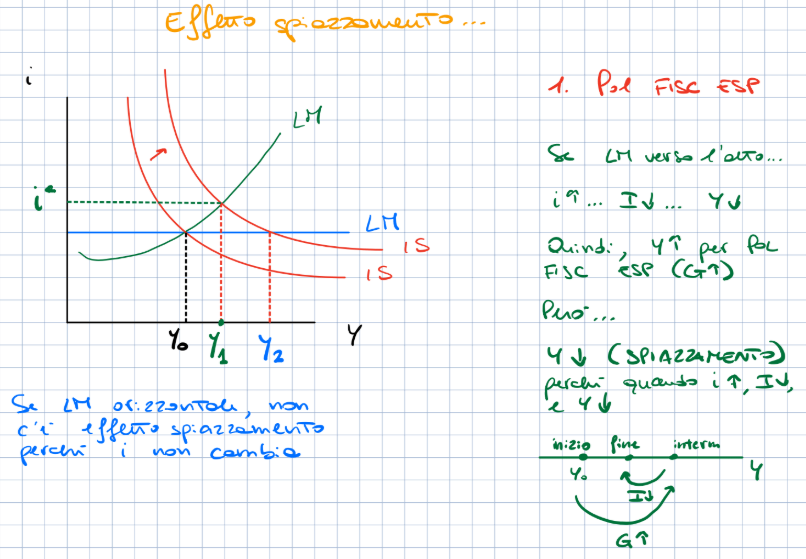 Effetto spiazzamento...
i
LM
i*
LM
IS
IS
Y₀
Y₁
Y₂
Y
Se LM orizzontale, non
c'è effetto spiazzamento
perché i non cambia
1. Pol FISC ESP
Se LM verso l'alto...
i↑... I↓... Y↓
Quindi, Y↑ per Pol
FISC ESP (G↑)
Però...
Y↓ (SPIAZZAMENTO)
perché quando i↑, I↓,
e Y↓
inizio fine interm
Y₀ Y
I↓
G↑